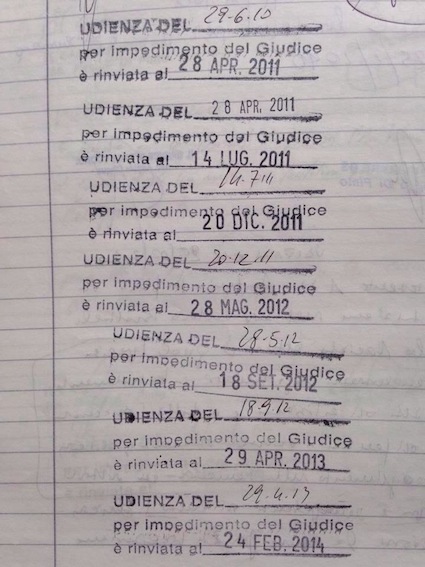 UDIENZA DEL 29-6.10
per impedimento del Giudice
è rinviata al 28 APR. 2011
UDIENZA DEL 28 APR. 2011
per impedimento del Giudice
è rinviata al 14 LUG. 2011
UDIENZA DEL
per impedimento del Giudice
è rinviata al 20 DIC. 2011
UDIENZA DEL 20.12.11
per impedimento del Giudice
è rinviata al 28 MAG. 2012
UDIENZA DEL 28-5.12
per impedimento del Giudice
è rinviata al 18 SET. 2012
UDIENZA DEL 18.9.12
per impedimento del Giudice
è rinviata al 29 APR. 2013
UDIENZA DEL 29.4.13
per impedimento del Giudice
è rinviata al 24 FEB. 2014